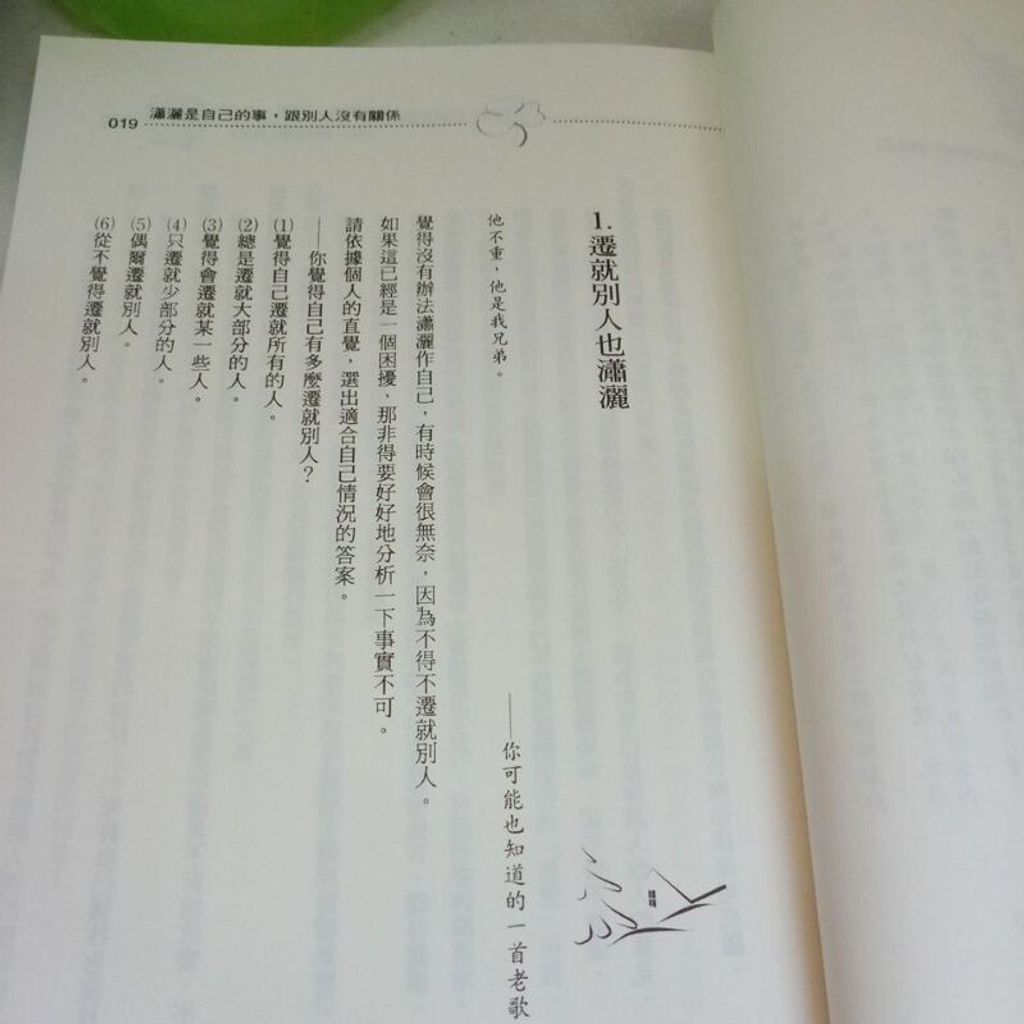 019
瀟灑是自己的事，跟別人沒有關係
1.遷就別人也瀟灑
他不重，他是我兄弟。
——你可能也知道的一首老歌
覺得沒有辦法瀟灑作自己，有時候會很無奈，因為不得不遷就別人。
如果這已經是一個困擾，那非得要好好地分析一下事實不可。
請依據個人的直覺，選出適合自己情況的答案。
——你覺得自己有多麼遷就別人？
(1)覺得自己遷就所有的人。
(2)總是遷就大部分的人。
(3)覺得會遷就某一些人。
(4)只遷就少部分的人。
(5)偶爾遷就別人。
(6)從不覺得遷就別人。